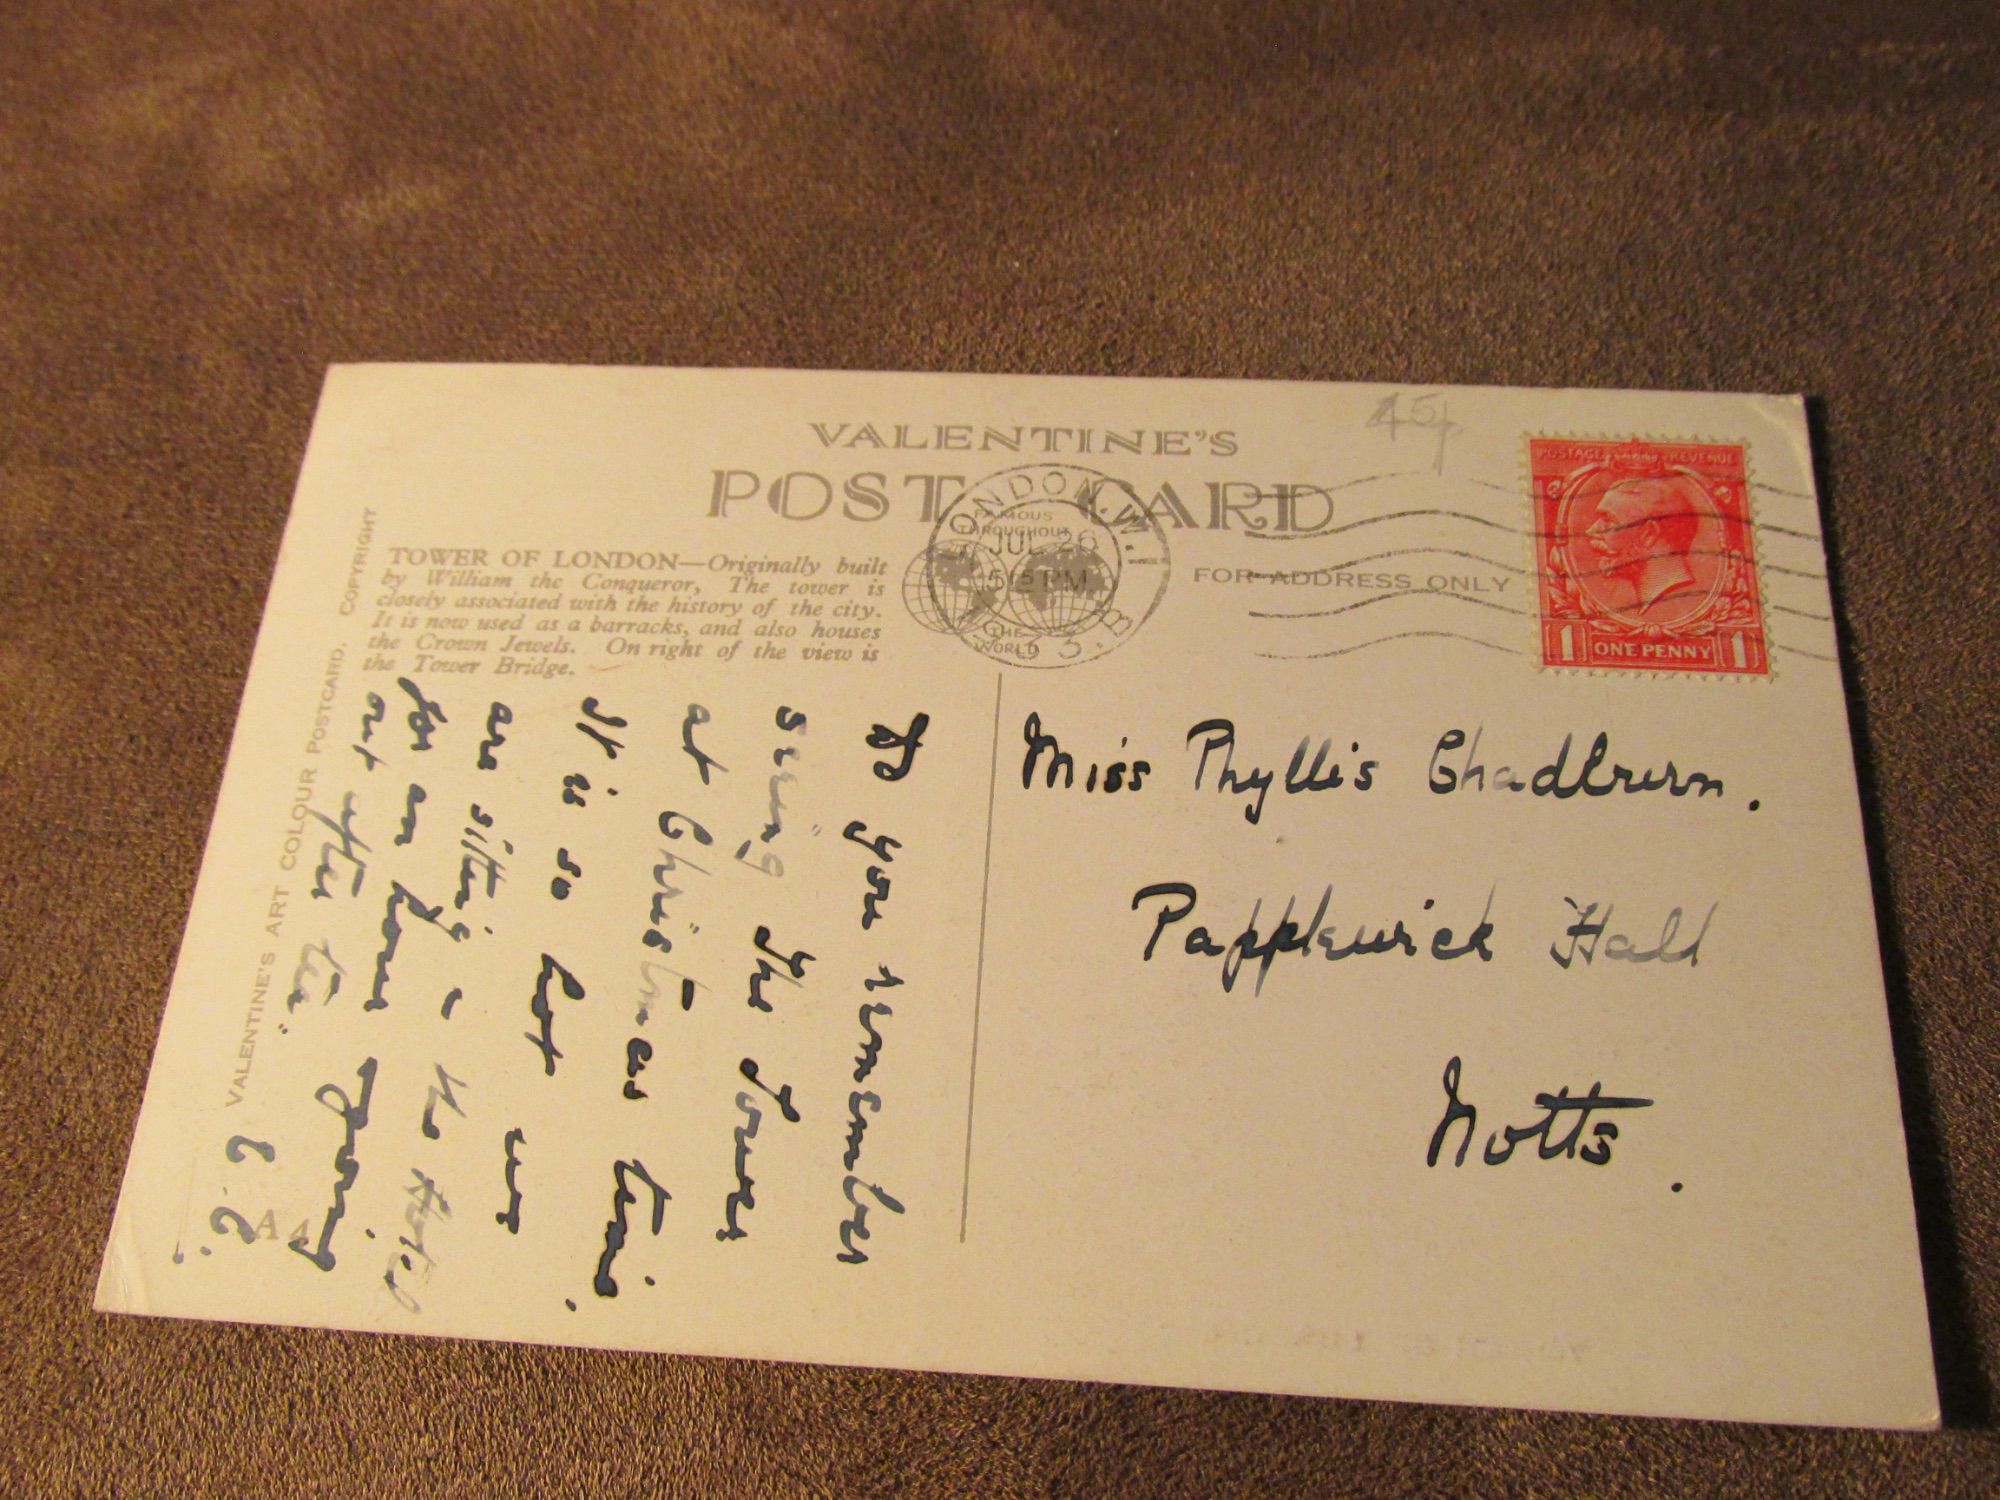 VALENTINE'S
POST CARD
45p
LONDON. W.1
JUL 26
5 15 PM
FAMOUS
THROUGHOUT
THE
WORLD
FOR ADDRESS ONLY
POSTAGE REVENUE
1 ONE PENNY 1
TOWER OF LONDON—Originally built
by William the Conqueror, The tower is
closely associated with the history of the city.
It is now used as a barracks, and also houses
the Crown Jewels. On right of the view is
the Tower Bridge.
VALENTINE'S ART COLOUR POSTCARD. COPYRIGHT
A 4
Do you remember
seeing the Tower
at Christmas time.
It is so hot we
are sitting in the Hotel
for an hour going
out after tea.
C. C.
Miss Phyllis Chadburn.
Papplewick Hall
Notts.